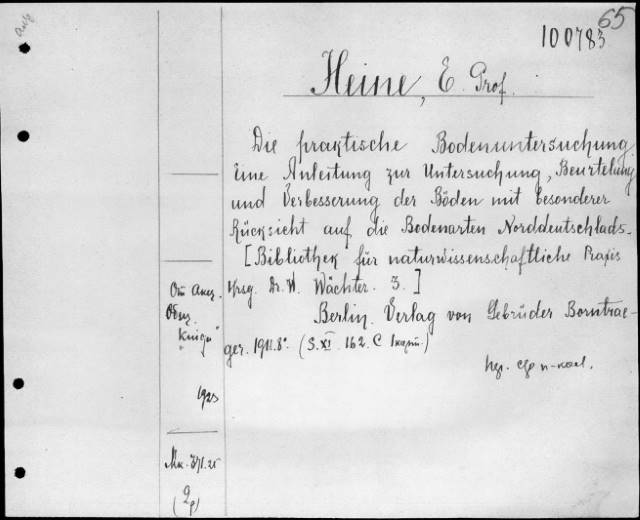 65
100783
Heine, E. Prof.
Die praktische Bodenuntersuchung.
Eine Anleitung zur Untersuchung, Beurtelung
und Verbesserung der Böden mit besonderer
Rücksicht auf die Bodenarten Norddeutschlads.
[Bibliothek für naturwissenschaftliche Praxis
Hrsg. Dr. W. Wächter. 3.]
Berlin. Verlag von Gebrüder Borntrae-
ger. 1911. 8°. (S. XI. 162. С 1 карт.)
От Акц.
Общ.
"Книга"
1923
(2р)